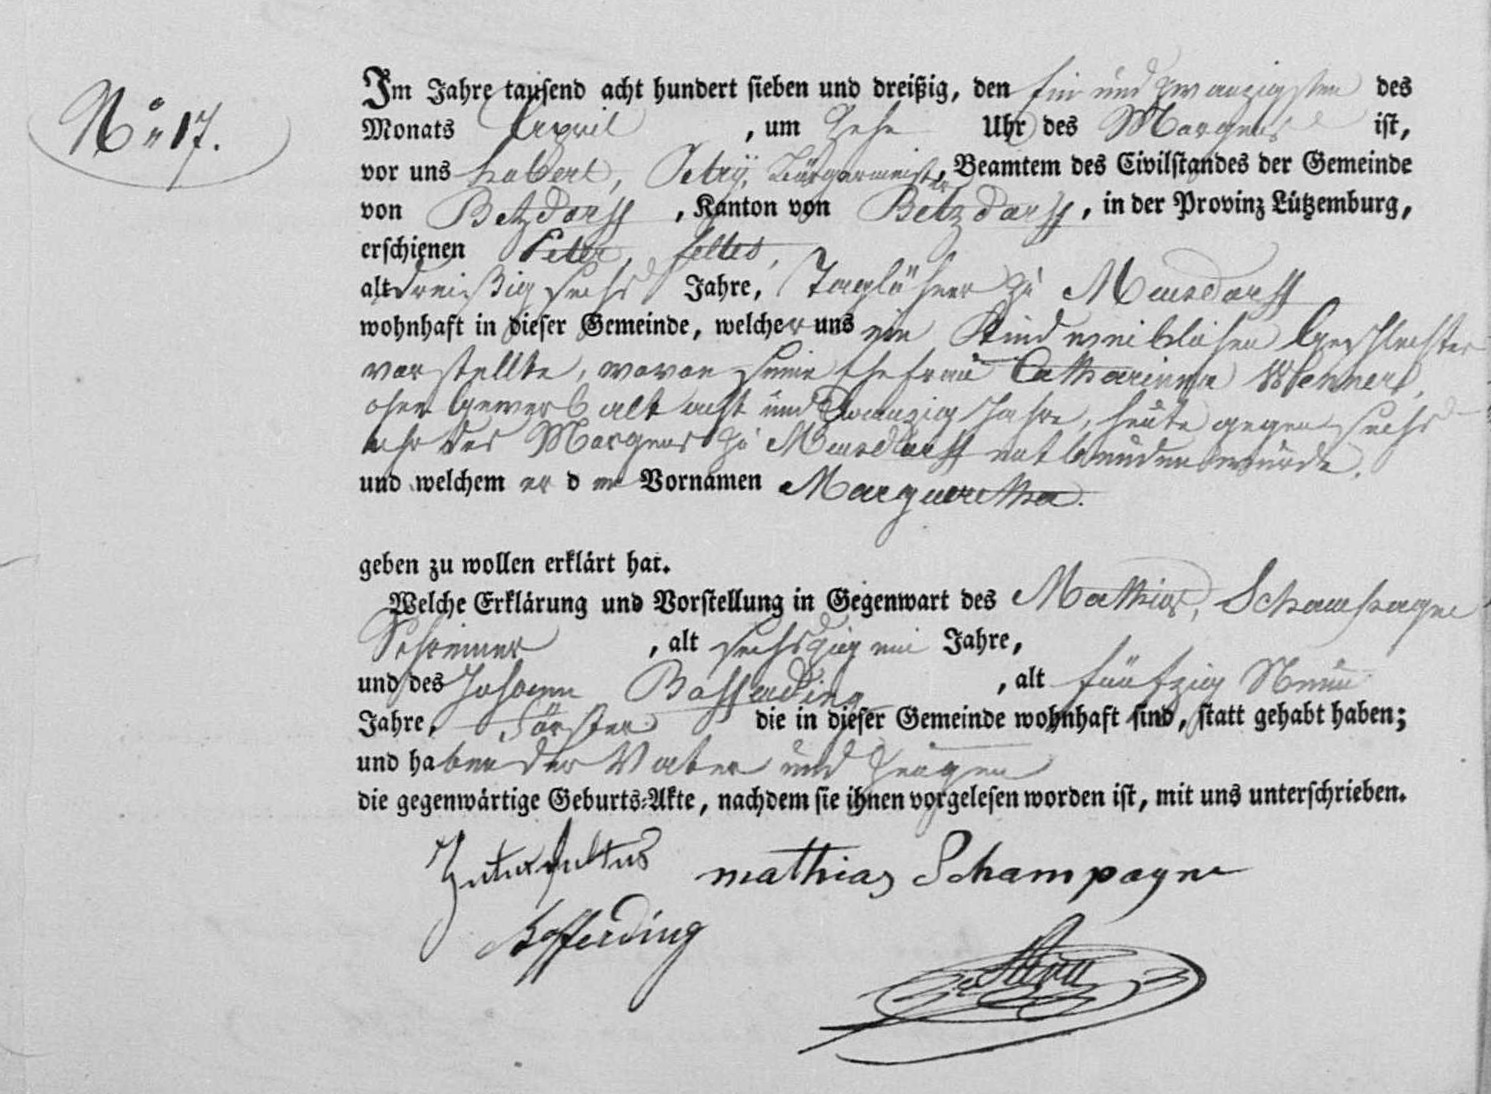 No 17.
Im Jahre tausend acht hundert sieben und dreißig, den Ein und zwanzigsten des
Monats April , um Zehn Uhr des Morgens ist,
vor uns Hubert, Petry, Bürgermeister, Beamtem des Civilstandes der Gemeinde
von Betzdorff , Kanton von Betzdorff , in der Provinz Lützemburg,
erschienen Peter, Feltes,
alt dreißig sechs Jahre, Taglöhner zu Mensdorff
wohnhaft in dieser Gemeinde, welcher uns ein Kind weiblichen Geschlechtes
vorstellte, wovon seine Ehefrau Catharinna Wenner,
ohne Gewerb alt acht und Zwanzig Jahre, heute gegen sechs
uhr des Morgens zu Mensdorff entbunden wurde.
und welchem er d en Vornamen Margueretha.
geben zu wollen erklärt hat.
Welche Erklärung und Vorstellung in Gegenwart des Mathias, Schampagne
Schreiner , alt sechszig ein Jahre,
und des Johann Bofferding , alt fünfzig Neun
Jahre, Förster die in dieser Gemeinde wohnhaft sind, statt gehabt haben;
und haben der Vater und Zeugen
die gegenwärtige Geburts-Akte, nachdem sie ihnen vorgelesen worden ist, mit uns unterschrieben.
Peter Feltes mathias Schampagne
Bofferding